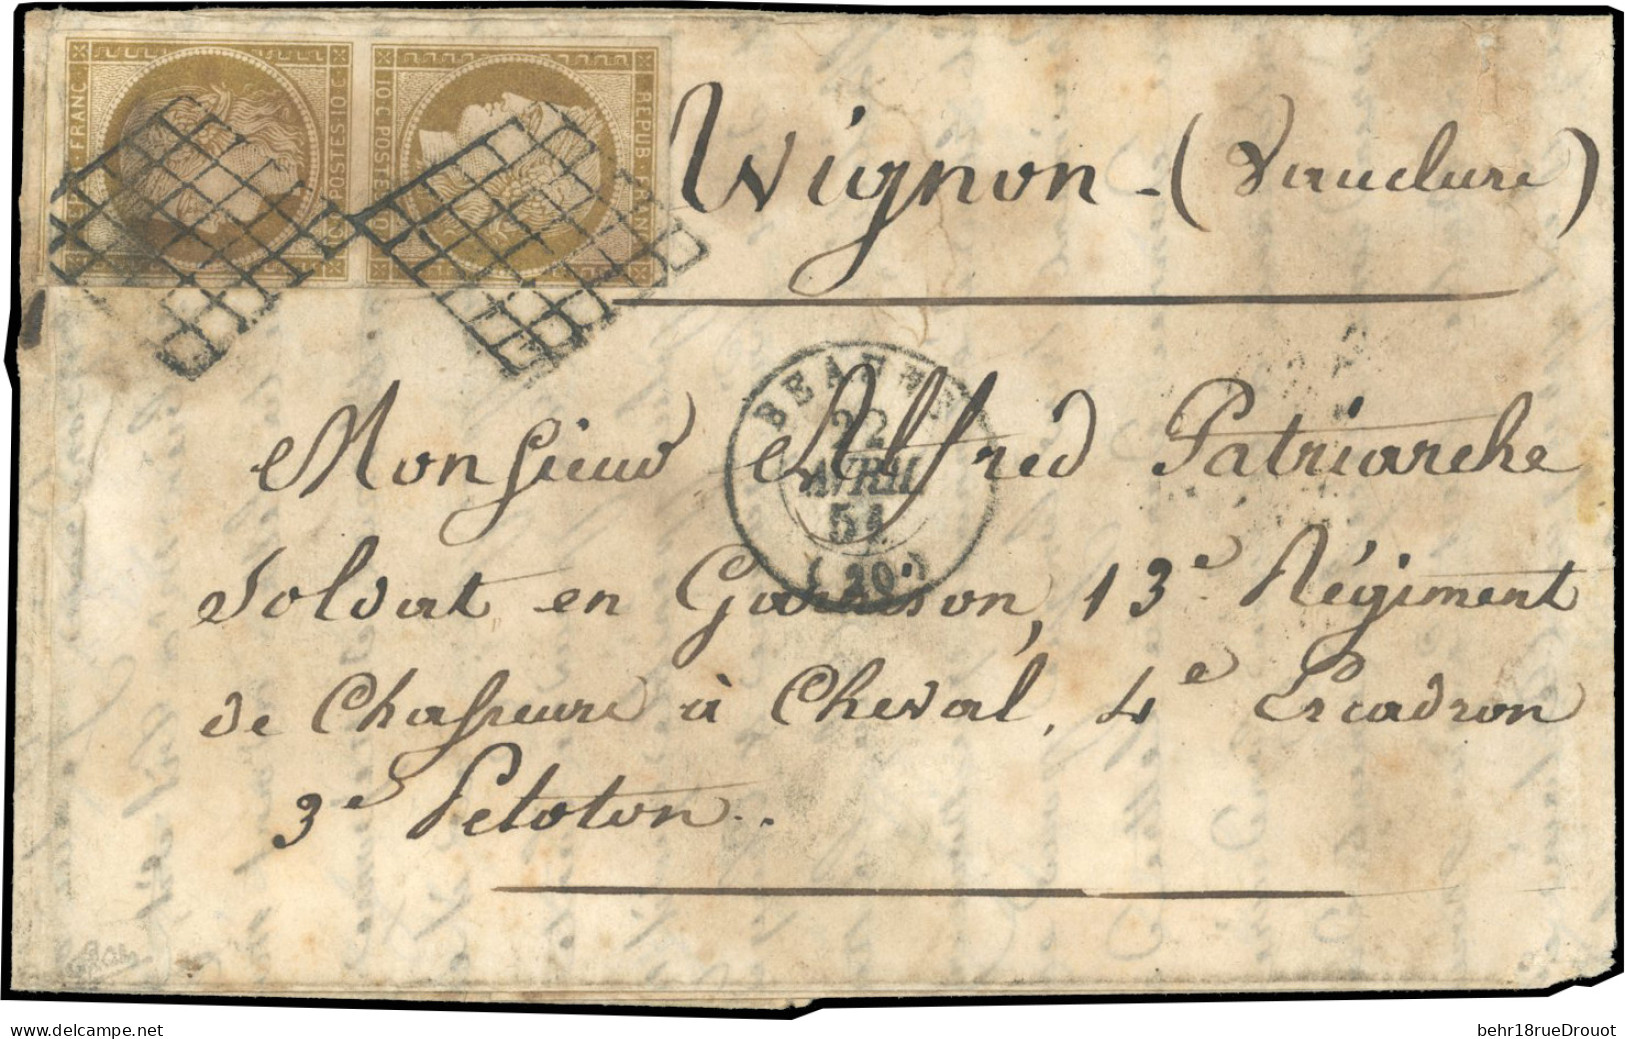 REPUB·FRANC·
POSTES 10 C.
REPUB·FRANC·
10 C. POSTES 10
Avignon - (Vaucluse)
BEAUNE
22
AVRIL
51
(20)
Monsieur Alfred Patriarche
Soldat en Garnison, 13e Régiment
de Chasseurs à Cheval, 4e Escadron
3e Peloton..
www.delcampe.net
behr18rueDrouot